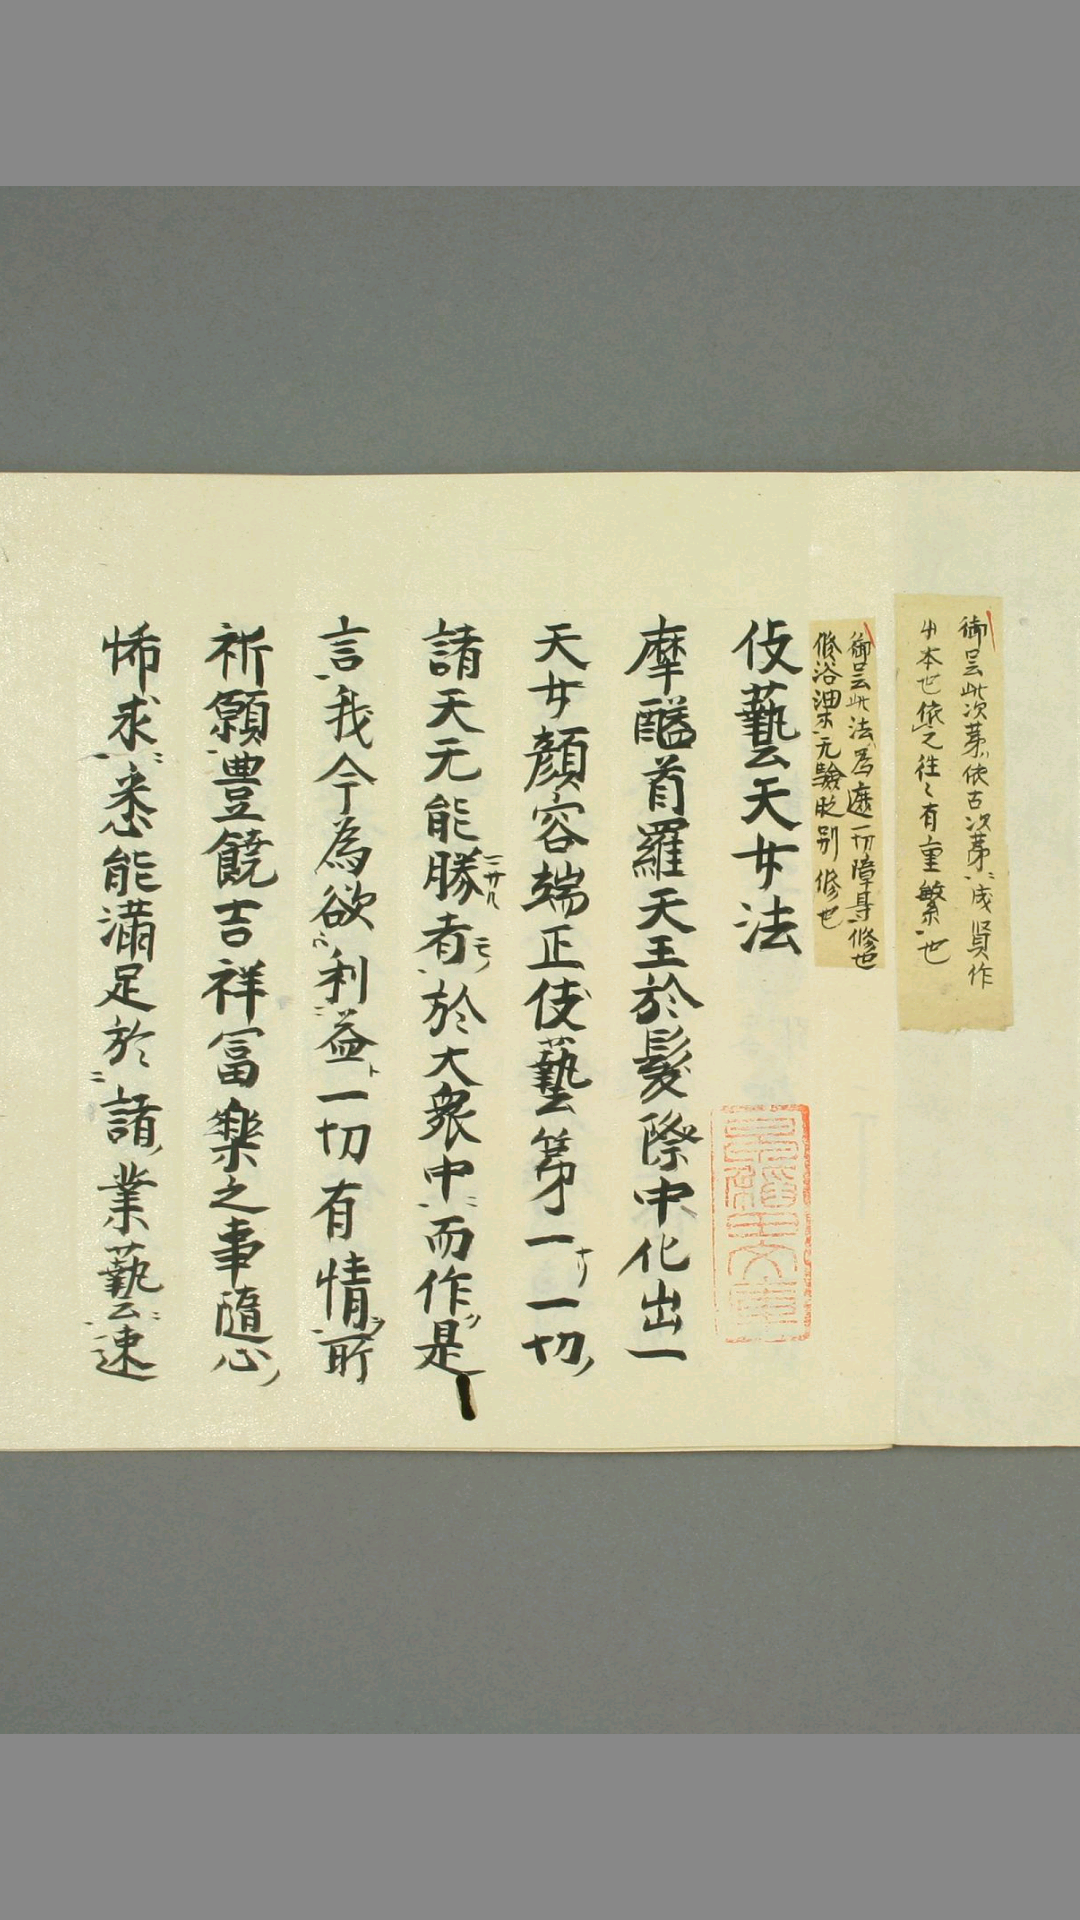 御云此次第依古次第成賢作
小本也依之往々有重繁也
御云此法為遮一切障㝵修也
修浴油不无驗时別修也
伎藝天女法
摩醯首羅天王於髮際中化出一
天女顏容端正伎藝第一ナリ一切ノ
諸天无能勝ニサル者モノ於大衆中ニ而作ク是
言ニ我今為欲利益ト一切有情ヲ所
祈願豊饒吉祥冨樂之事隨心ノ
悕求ニ悉能滿足於ニ諸ノ業藝ニ速